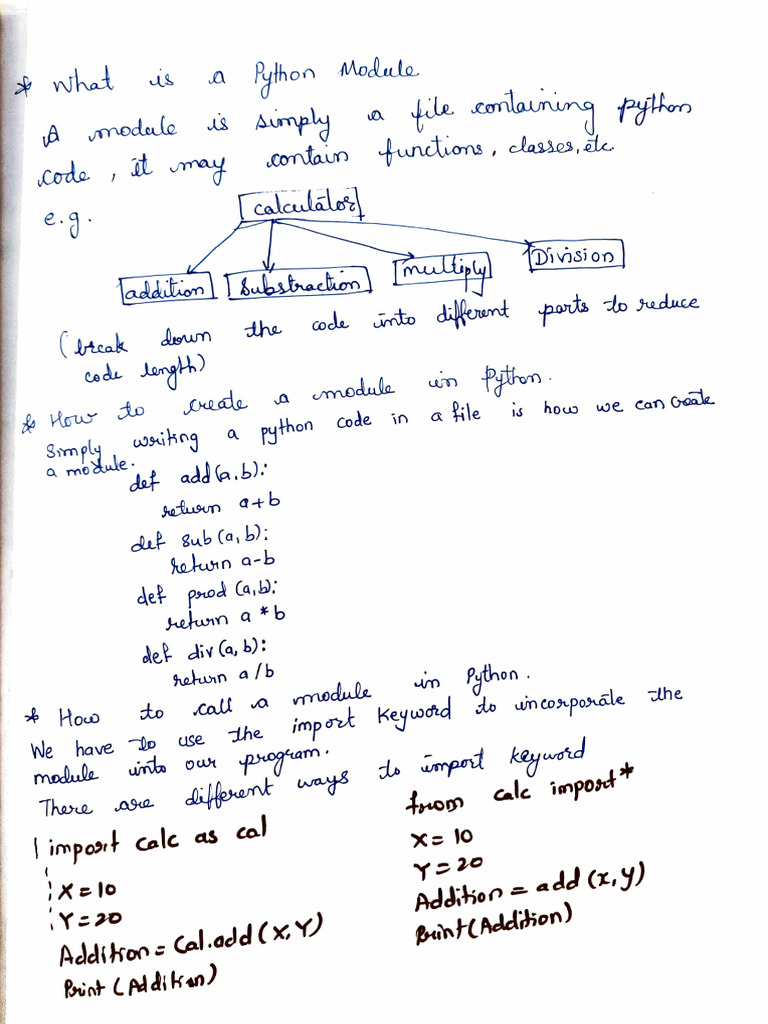 * What is a Python Module
A module is simply a file containing python
code, it may contain functions, classes, etc.
e.g.
calculator
addition Substraction multiply Division
(break down the code into different parts to reduce
code length)
* How to create a module in Python.
Simply writing a python code in a file is how we can create
a module.
def add(a,b):
return a+b
def sub(a,b):
return a-b
def prod(a,b):
return a*b
def div(a,b):
return a/b
* How to call a module in Python.
We have to use the import keyword to incorporate the
module into our program.
There are different ways to import keyword
import calc as cal
X=10
Y=20
Addition = Cal.add(X,Y)
Print (Addition)
from calc import*
X=10
Y=20
Addition = add(x,y)
Print(Addition)